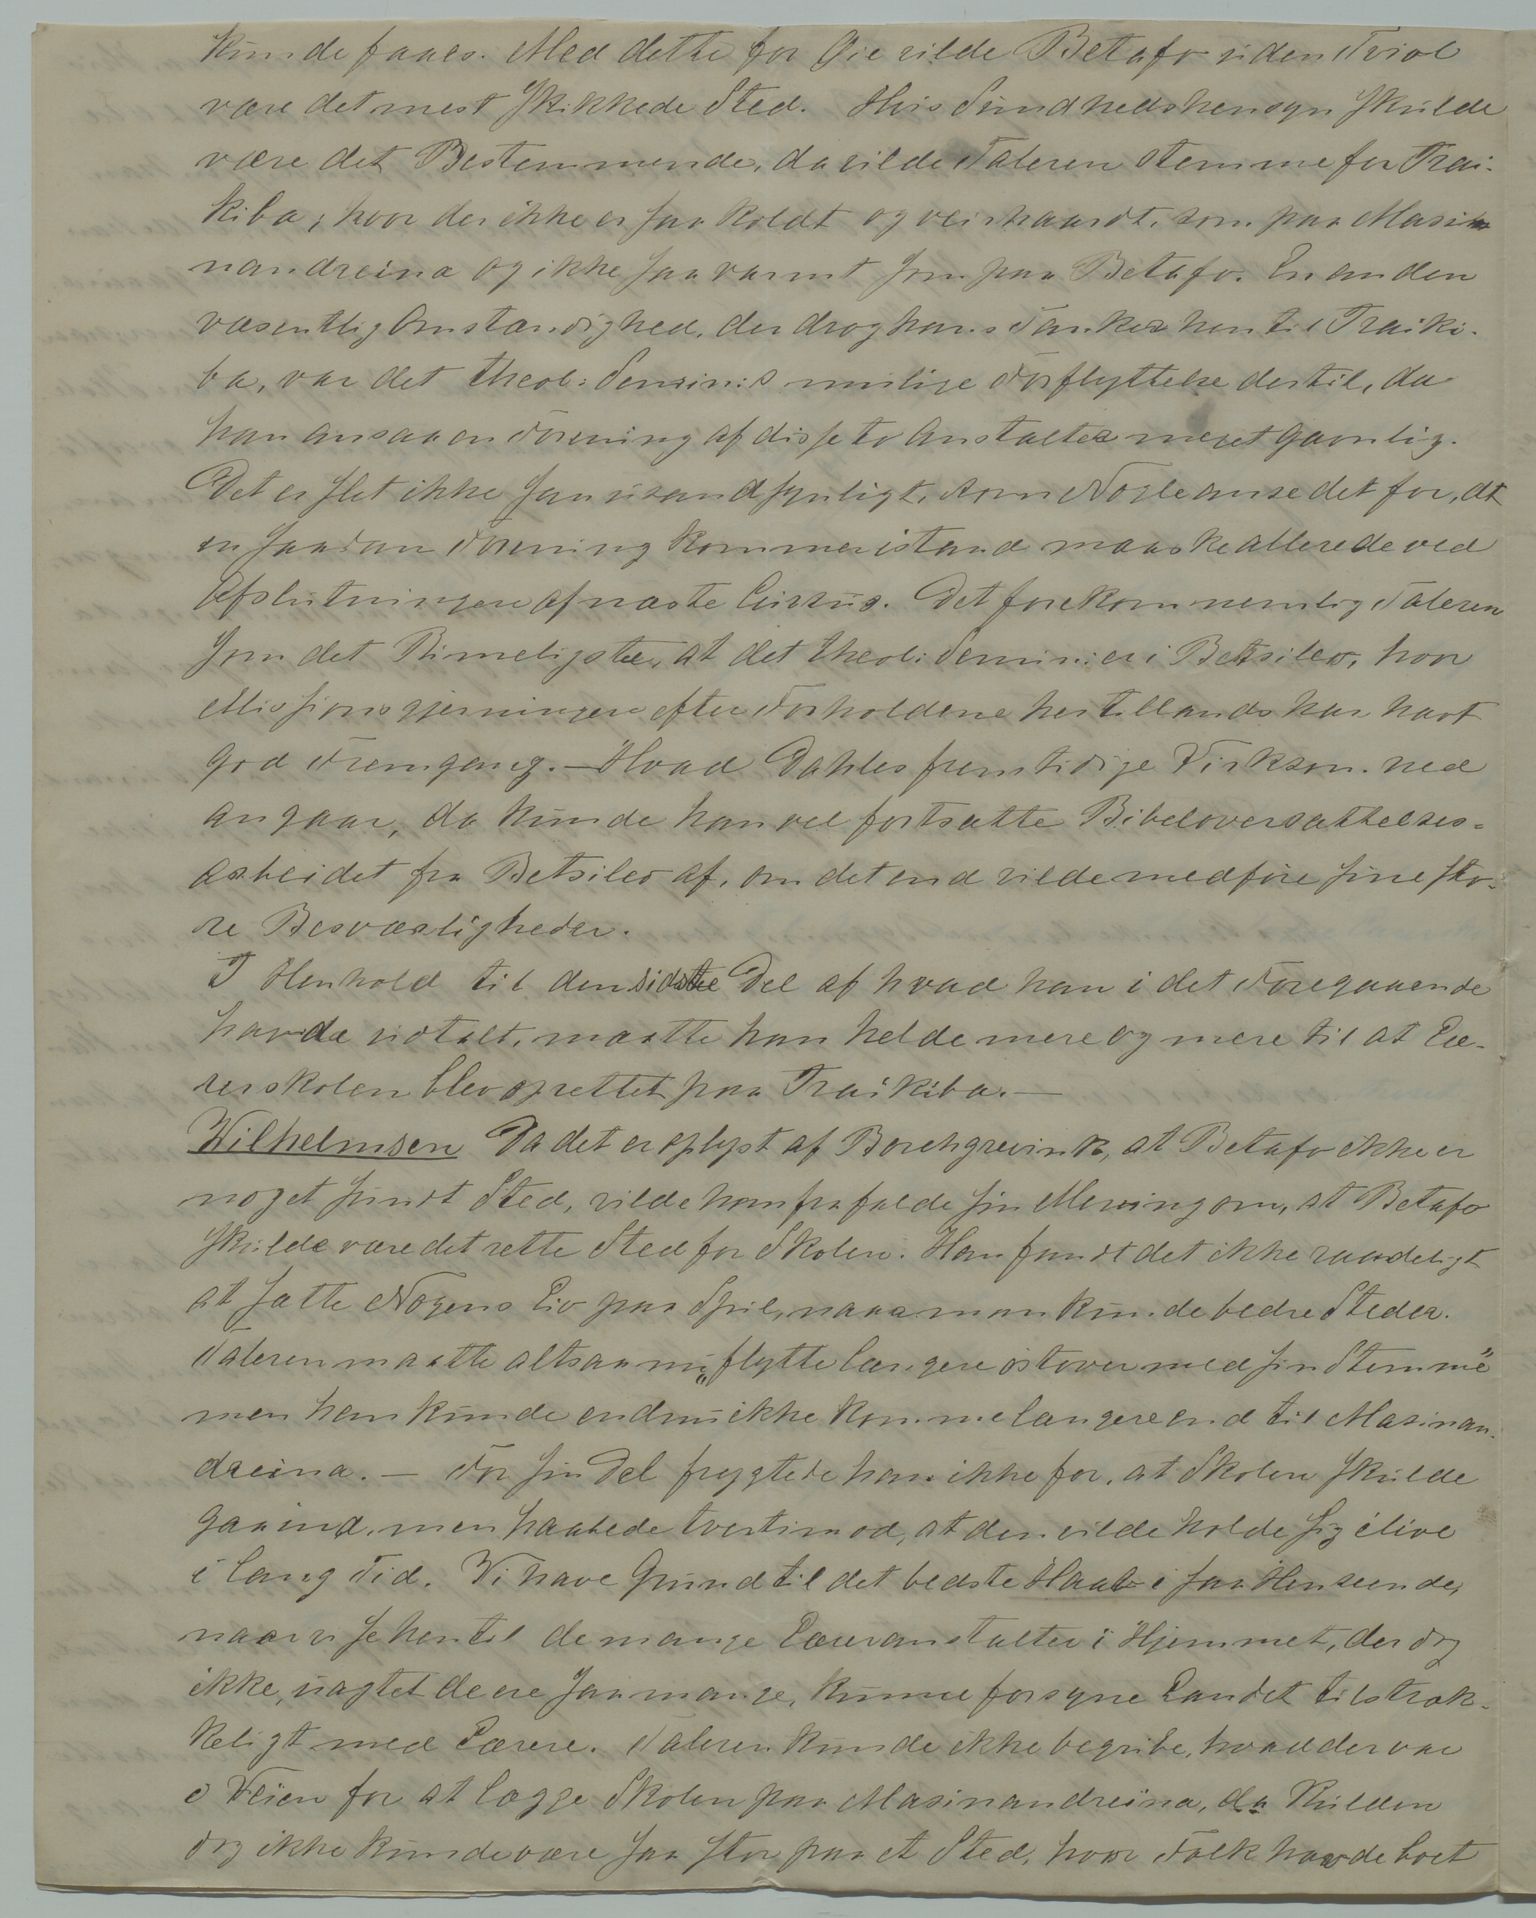 kunde faaes. Med dette for Øie vilde Betafo uden Tvivl
være det mest skikkede Sted. Hvis Sundhedshensyn skulde
være det Bestemmende, da vilde Taleren stemme for Trai-
kiba, hvor der ikke er saa koldt og veirhaardt, som paa Masi-
nandreina og ikke saa varmt som paa Betafo. En anden
væsentlig Omstændighed, der drog hans Tanker hen til Traiki-
ba, var det theol: Semin:s mulige Forflyttelse dertil, da
han ansaa en Forening af disse to Anstalter meget gavnlig.
Det er slet ikke saa usandsynligt, som Nogle anse det for, at
en saadan Forening kommer istand maaske allerede ved
Afslutningen af næste Cursus. Det forekom nemlig Taleren
som det Rimeligste, at det theol: Semin: er i Betsileo, hvor
Missionsgjerningen efter Forholdene her tillands har havt
god Fremgang. – Hvad Dahles fremtidige Virksom. hed
angaar, da kunde han vel fortsætte Bibeloversættelses-
arbeidet fra Betsileo af, om det end vilde medføre sine sto-
re Besværligheder.
I Henhold til den sidste Del af hvad han i det Foregaaende
havde udtalt, maatte han helde mere og mere til at Læ-
rerskolen blev oprettet paa Traikiba. –
Wilhelmsen Da det er oplyst af Borchgrevink, at Betafo ikke er
noget sundt Sted, vilde han frafalde sin Mening om, at Betafo
skulde være det rette Sted for Skolen. Han fandt det ikke raadeligt
at sætte Nogens Liv paa Spil, naar man kunde bedre Steder.
Taleren maatte altsaa nu „flytte længere østover med sin Stemme"
men han kunde endnu ikke komme længere end til Masinan-
dreina. – For sin Del frygtede han ikke for, at Skolen skulde
gaa ind, men haabede tvertimod, at den vilde holde sig ilive
i lang Tid. Vi have Grund til det bedste Haab i saa Henseende,
naar vi se hen til de mange Læreranstalter i Hjemmet, der dog
ikke, uagtet de ere saa mange, kunne forsyne Landet tilstræk-
keligt med Lærere. Taleren kunde ikke begribe, hvad der var
i Veien for at lægge Skolen paa Masinandreina, da Kulden
dog ikke kunde være saa stor paa et Sted, hvor Folk havde boet